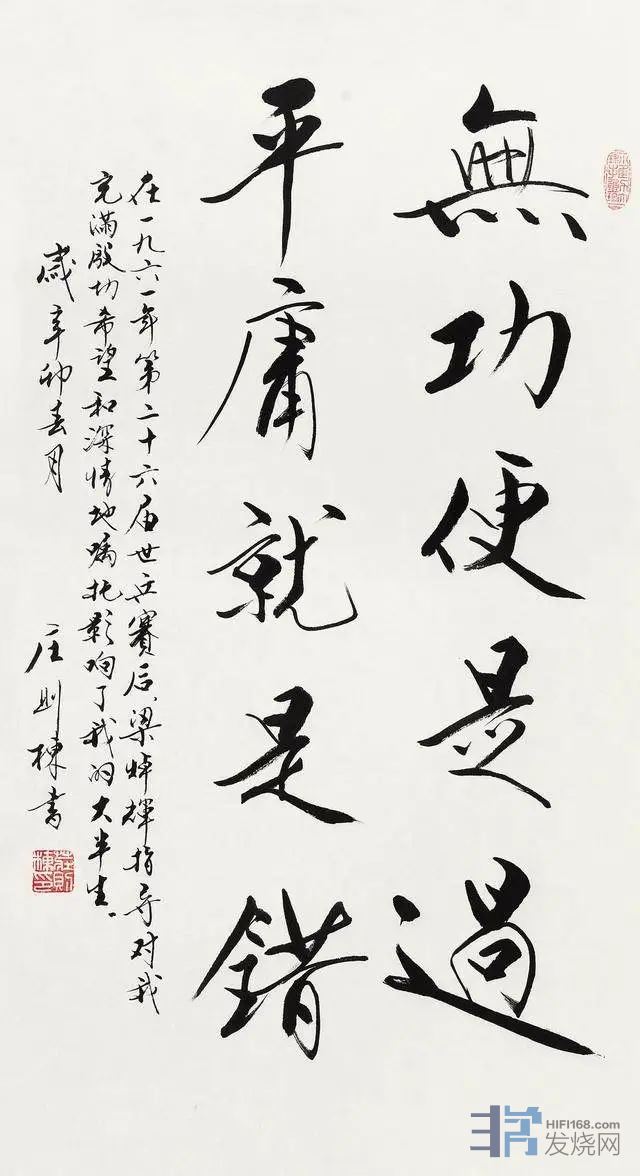 無功便是過
平庸就是错
在一九六一年第二十六届世乒赛后、梁焯輝指导对我
充满殷切希望和深情地嘱托影响了我的大半生。
岁辛卯春月 庄则栋书
莊則棟印
HIFI168.com
发烧网